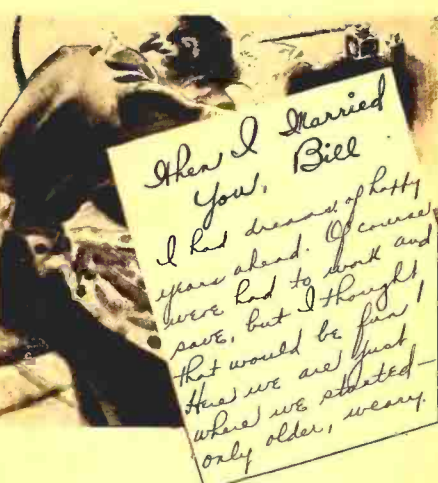 When I Married
You, Bill
I had dreams of happy
years ahead. Of course,
were had to work and
save, but I thought
that would be fun!
Here we are just
where we started—
only older, weary.